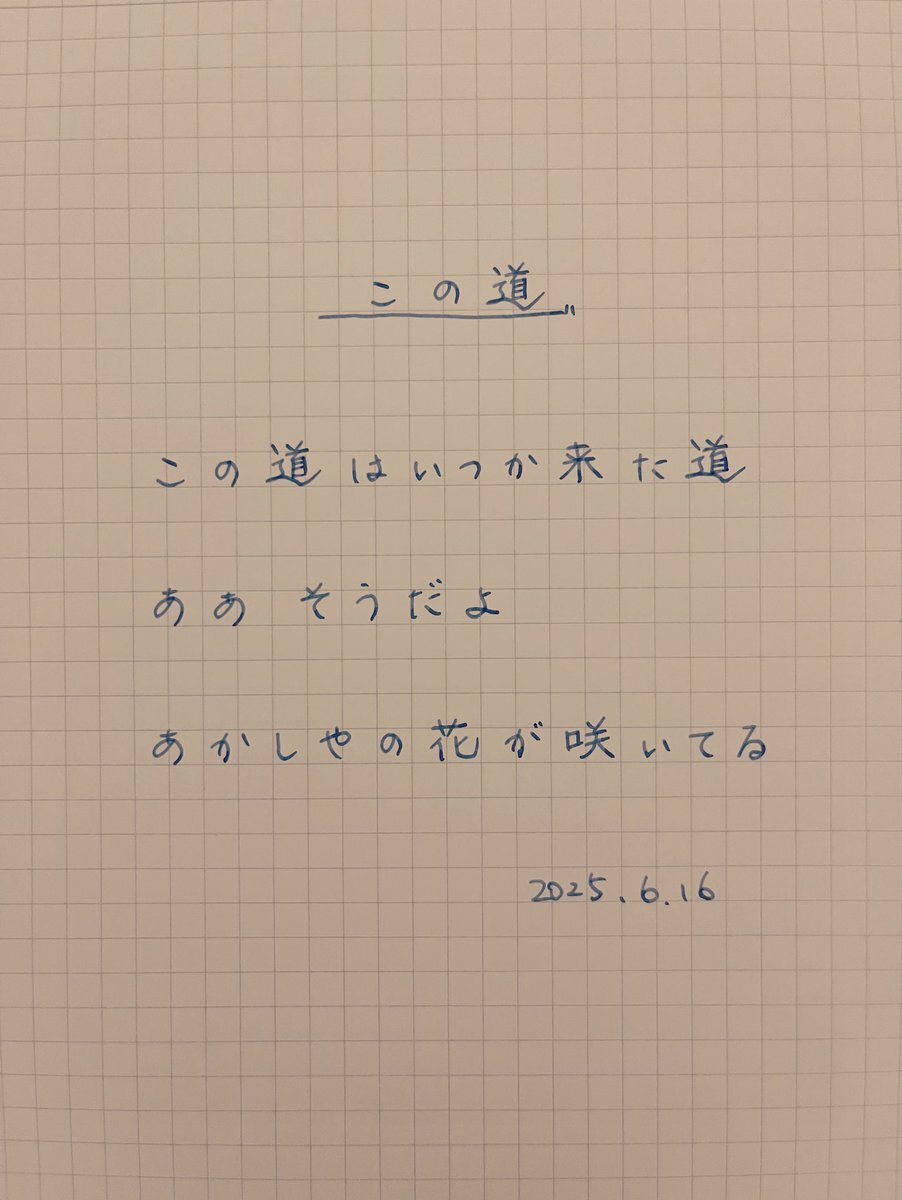 この道
この道はいつか来た道
ああ そうだよ
あかしやの花が咲いてる
2025.6.16